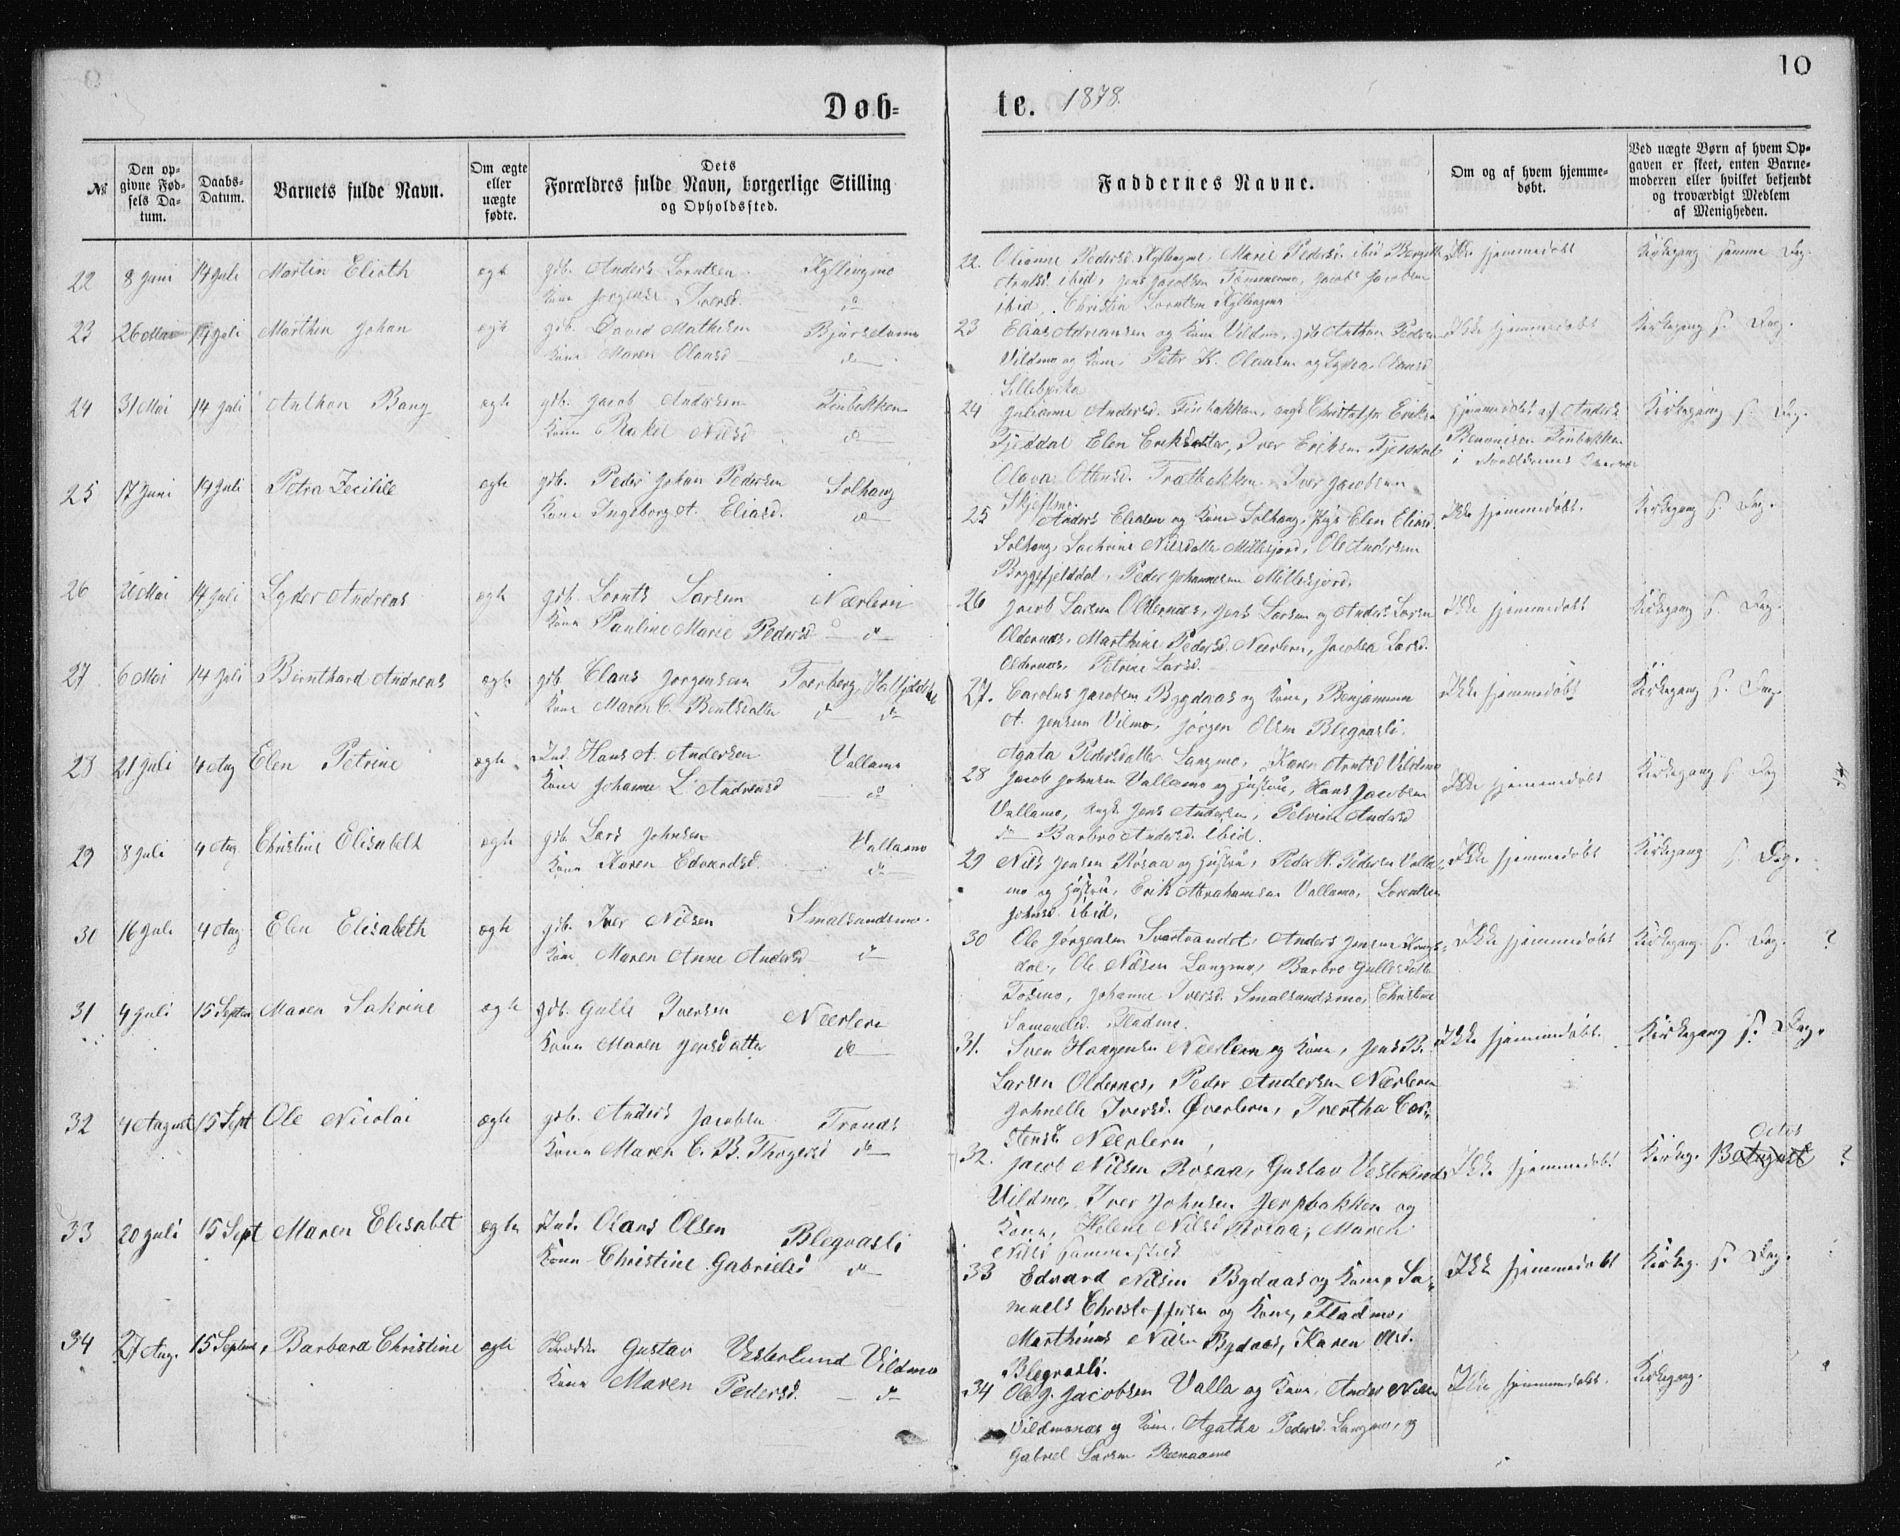 10
Døb=
te. 1878.
№
Den op-
givne Fød-
sels Da-
tum.
Daabs-
Datum.
Barnets fulde Navn.
Om ægte
eller
uægte
fødte.
Dets
Forældres fulde Navn, borgerlige Stilling
og Opholdssted.
Faddernes Navne.
Om og af hvem hjemme-
døbt.
Ved uægte Børn af hvem Op-
gaven er skeet, enten Barne-
moderen eller hvilket bekjendt
og troværdigt Medlem
af Menigheden.
22 8 Juni 14 Juli Martin Elioth ægte gdb. Anders Lorntsen Kyllingmo
Kone Jørgense Iversd. do
22. Pedersd. Kyllingmo, Marie Pedersd. ibid
Arntsd. ibid, Jens Jacobsen Jacob Jacobsen
ibid. Christin Lorntsen Kyllingmo
Ikke hjemmedøbt Kirkegang samme Dag.
23 26 Mai 14 Juli Marthin Johan ægte gdb. David Mathisen
Kone Maren Olausd do
23 Elias Adriansen og Kone Vildmo, gdb Anthon Pedersen
Vildmo og Kone, Peter K. Olausen og Olausd
Ikke hjemmedøbt Kirkegang s. Dag.
24 31 Mai 14 Juli Anthon Bang ægte gdb. Jacob Andersen
Kone Rakel Nilsd do
24 Julianne Andersd. ungk Christoffer Eriksen
Fjelddal Elen Eriksdatter, Iver Eriksen Fjelddal
Olava Ottersd. Iver Jacobsen
Skjeflmo.
Hjemmedøbt af Anders
Kirkegang s. Dag.
25 17 Juni 14 Juli Petra Zecilie ægte gdb. Peder Johan Pedersen Solhaug
Kone Ingeborg A. Eliasd. do
25 Anders Eliasen og Kone Solhaug, Pige Elen Eliasd.
Solhaug, Nilsdatter Millesjord, Ole Andersen
Byggfjelddal, Peder Johannesen Millesjord.
Ikke hjemmedøbt. Kirkegang s. Dag.
26 26 Mai 14 Juli Lyder Andreas ægte gdb. Lornts Larsen Nærlern
Kone Pauline Marie Pedersd do
26 Jacob Larsen Oldernæs, Jens Larsen og Anders Larsen
Oldernæs, Marthine Pedersd. Neerlern, Jacobea Larsd.
Oldernæs, Petrine Larsd.
Ikke hjemmedøbt Kirkegang s. Dag.
27 6 Mai 14 Juli Bernthard Andreas ægte gdb. Claus Jørgensen Tverberg, Hatfjelddal
Kone Maren C. Bentsdatter do do
27. Carolus Jacobsen Bygdaas og Kone, Benjaminn
A. Jensen Vilmo, Jørgen Olsen Blegvasli.
Agata Pedersdatter Langmo, Karen Arntsd Vildmo
Ikke hjemmedøbt Kirkegang s. Dag.
28 21 Juli 4 Aug Elen Petrine ægte Ind. Hans A. Andersen Vallamo
Kone Johanne L. Andreasd do
28 Jacob Johnsen Vallamo og Hustru, Hans Jacobsen
Vallamo, ungk Jens Andersen, Petrine Andersd
do Barbro Andersd. ibid.
Ikke hjemmedøbt Kirkegang s. Dag
29 8 Juli 4 Aug Christine Elisabeth ægte gdb. Lars Johnsen Vallamo
Kone Karen Edvardsd do
29 Nils Jensen Rosaa og Hustru, Peder N. Pedersen Valla-
mo og Hustru, Erik Abrahamsen Vallamo, Lorentsen
Johnsd. ibid.
Ikke hjemmedøbt Kirkegang s. Dag.
30 16 Juli 4 Aug Elen Elisabeth ægte gdb. Iver Nilsen Smalsandsmo.
Kone Maren Anne Andersd do
30 Ole Jørgensen Svartvandet, Anders Jensen Krogs-
dal, Ole Nilsen Langmo, Barbro Gullesdatter
Tosmo, Johanne Iversd. Smalsandsmo, Christine
Samuelsd. Fladmo.
Ikke hjemmedøbt Kirkegang s. Dag. ?
31 4 Juli 15 Septbr Maren Sakrine ægte gdb. Gulle Iversen Neerlern
Kone Maren Jensdatter do
31. Sven Haagensen Neerlern og Kone, Jens B.
Larsen Oldernes, Peder Andersen Nærlern
Johnelle Iversd. Øverlern, Ivertha Cars-
tensd. Neerlern
Ikke hjemmedøbt. Kirkegang s. Dag.
32 4 August 15 Sept Ole Nicolai ægte gdb. Anders Jacobsen Tronds
Kone Maren C. B. Thogersd do
32. Jacob Nilsen Rosaa, Gustav Vesterlund
Vildmo, Iver Johnsen Jerpbakken og
Kone, Helene Nilsd Rosaa, Maren
Nilsd sammested
Ikke hjemmedøbt Kirkeg. 13 August Octob ?
33 20 Juli 15 Sept Maren Elisabet ægte Ind. Olaus Olsen Blegvasli
Kone Christine Gabrielsd do
33 Edvard Nilsen Bygdaas og Kone, Sa-
muels Christoffersen og Kone, Fladmo,
Marthinus Nilsen Bygdaas, Karen Olsd.
Blegvasli.
Ikke hjemmedøbt Kirkeg. s. Dag.
34 27 Aug. 15 Septemb. Barbara Christine ægte Gustav Vesterlund Vildmo
Kone Maren Pedersd. do
34 Ole J. Jacobsen Valla og Kone, Anders Nilsen
Vildmonæs og Kone, Agatha Pedersd. Langmo, og
Gabriel Larsen
Ikke hjemmedøbt. Kirkegang.